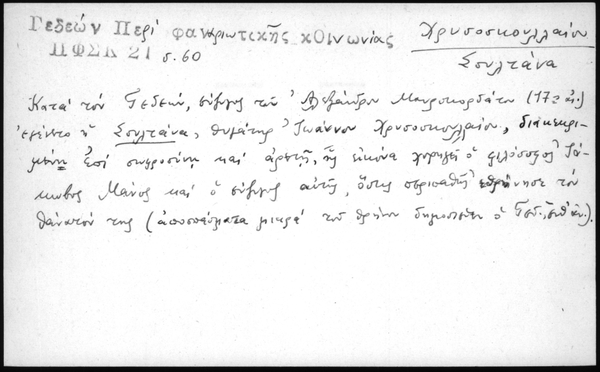 Γεδεών Περί φαναριωτικῆς κοινωνίας
ΠΦΣΚ 21 σ. 60
Χρυσοσκουλλαίου
Σουλτάνα
Κατά τόν Γεδεών, σύζυγος τοῦ Ἀλεξάνδρου Μαυροκορδάτου (172
ἐγένετο ἡ Σουλτάνα, θυγάτηρ Ἰωάννου Χρυσοσκουλαίου, διακεκρι-
μένη ἐπί σωφροσύνῃ καί ἀρετῇ, ἧς εἰκόνα χορηγεῖ ὁ φιλόσοφος Ἰά-
κωβος Μάνος καί ὁ σύζυγος αὐτῆς, ὅστις περιπαθῶς ἐθρήνησε τόν
θάνατόν της (ἀποσπάσματα μικρά τοῦ θρήνου δημοσιεύει ὁ Γεδ.